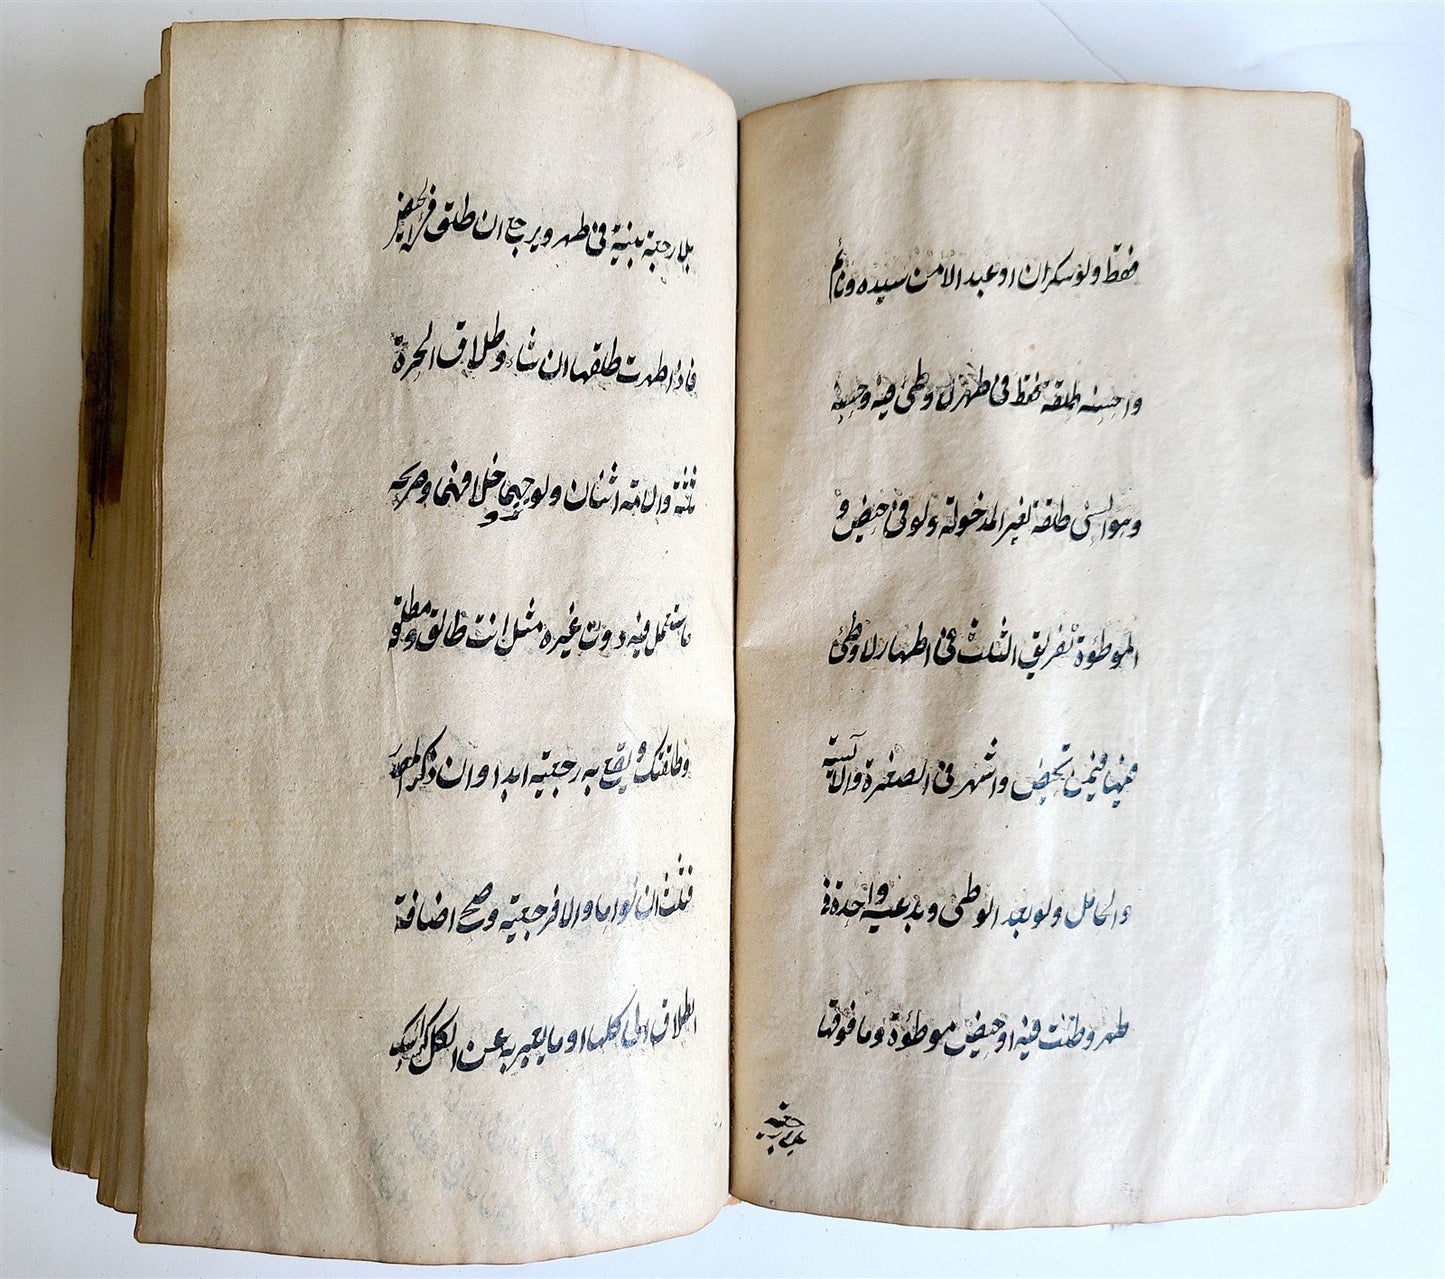 فقط ولو سكران او عبد الا من سيده ونائم
واحسنه طلقة فقط فى طهر لا وطئ فيه وحسنه
وهو السنى طلقة لغير المدخولة ولو فى حيض و
الموطؤة تفريق الثلث فى اطهار لا وطئ
فيها فيمن تحيض واشهر فى الصغيرة والآيسة
والحامل ولو بعد الوطى وبدعيه واحدة فى
طهر وطئت فيه او حيض موطؤة وما فوقها
بلا رجعة
بلا رجعة بينية فى طهر ويرجع ان طلق فى الحيض
فاذا طهرت طلقها ان شاء وطلاق الحرة
ثلثة والامة اثنتان ولو زوجهما خلافهما وصريحه
ما استعمل فيه دون غيره مثل انت طالق ومطلقة
وطلقتك ويقع به رجعية ابدا وان ذكر المصدر
فثلث ان نواها والا فرجعية وصح اضافة
الطلاق الى كلها او ما يعبر به عن الكل كرأسك